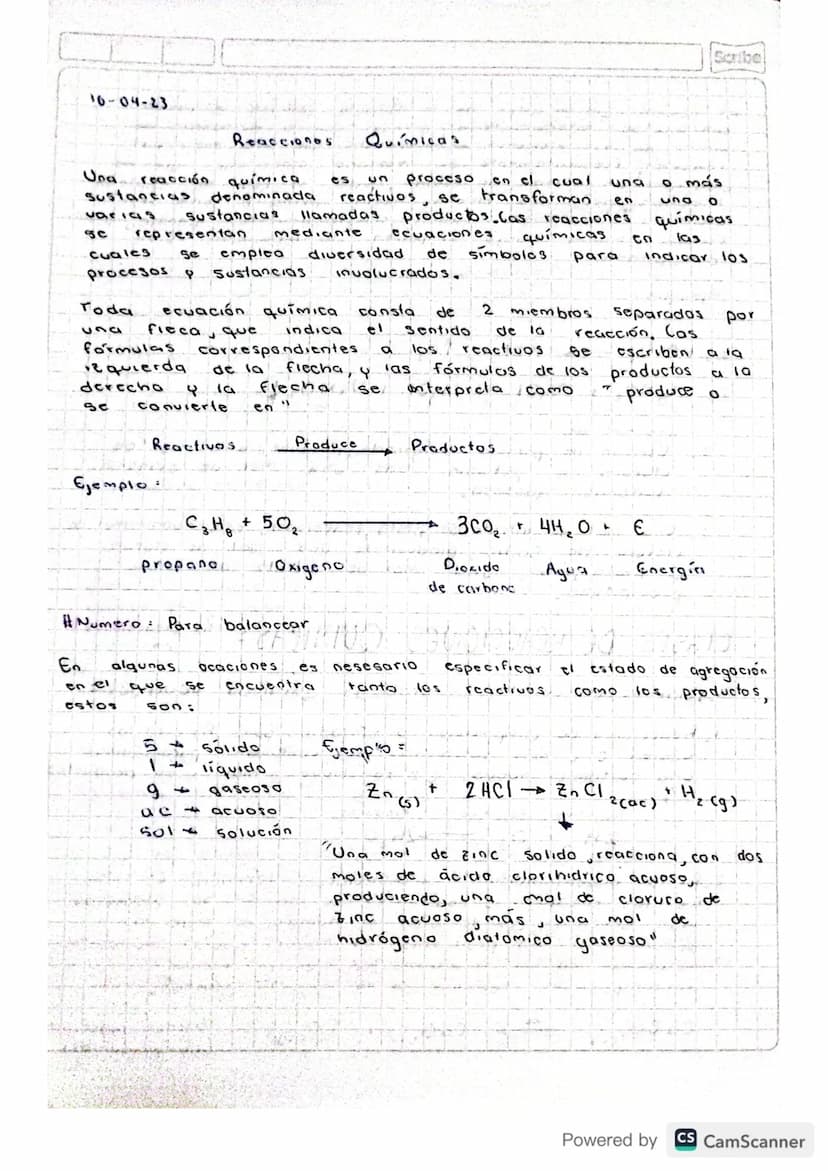 Scribe
10-04-23
Reacciones Químicas
Una reacción química es un proceso en el cual una o más
sustancias denominada reactivos, se transforman en una o
varias sustancias llamadas productos. Las reacciones químicas
se representan mediante ecuaciones químicas en las
cuales se emplea diversidad de símbolos para indicar los
procesos y sustancias involucrados.
Toda ecuación química consta de 2 miembros separados por
una fleca, que indica el sentido de la reacción. Las
fórmulas correspondientes a los reactivos se escriben a la
izquierda de la flecha, y las fórmulas de los productos a la
derecha y la flecha se interpreta como "produce o
se convierte en"
Reactivos Produce → Productos
Ejemplo:
C₃H₈ + 5O₂ → 3CO₂ + 4H₂O + E
propano Oxigeno Dioxido Agua Energía
de carbono
# Numero: Para balancear
En algunas ocaciones es nesesario especificar el estado de agregación
en el que se encuentra tanto los reactivos como los productos,
estos son:
s → sólido
l → líquido
g → gaseoso
ac → acuoso
sol → solución
Ejemplo:
Zn(s) + 2HCl → ZnCl₂(ac) + H₂(g)
↓
"Una mol de zinc solido, reacciona, con dos
moles de ácido clorihidrico acuoso,
produciendo, una mol de cloruro de
zinc acuoso, más, una mol de
hidrógeno diatomico gaseoso"
Powered by CS CamScanner